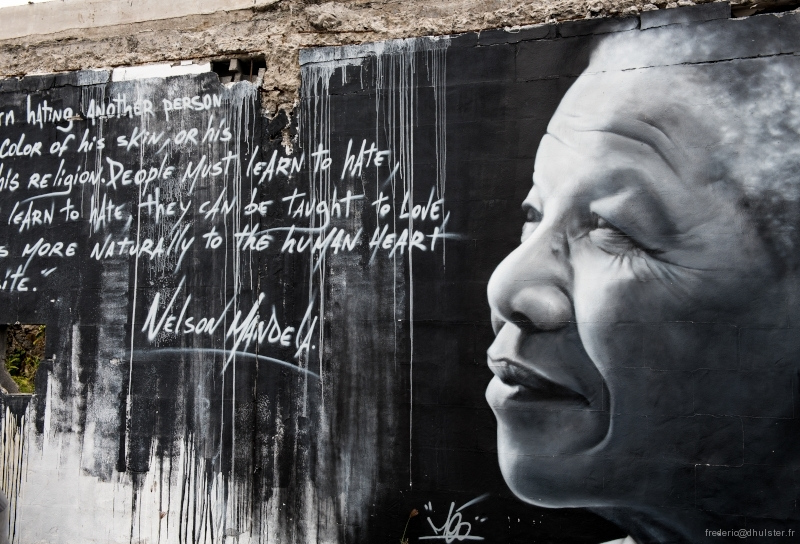 rn hating another person
color of his skin, or his
his religion. People must learn to hate,
learn to hate, they can be taught to love,
s more naturally to the human heart
ite."
Nelson Mandela.
frederic@dhulster.fr